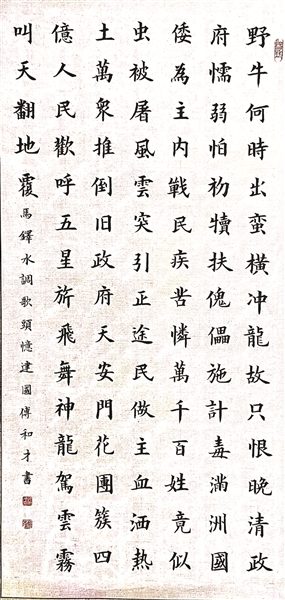 野牛何時出蛮橫冲龍故只恨晚清政
府懦弱怕初犢扶傀儡施計毒滿洲國
倭為主內戰民疾苦憐萬千百姓竟似
虫被屠風雲突引正途民做主血洒熱
土萬衆推倒旧政府天安門花團簇四
億人民歡呼五星旂飛舞神龍駕雲霧
叫天翻地覆
馬鐸水調歌頭憶建國傅和才書